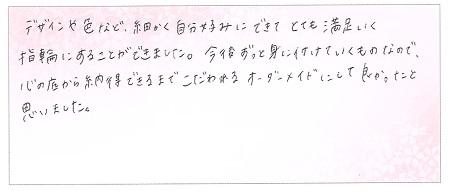 デザインや色など、細かく自分好みにできて とても満足いく
指輪にすることができました。今後ずっと身に付けていくものなので、
心の底から納得できるまで こだわれる オーダーメイドにして良かったなと
思いました。